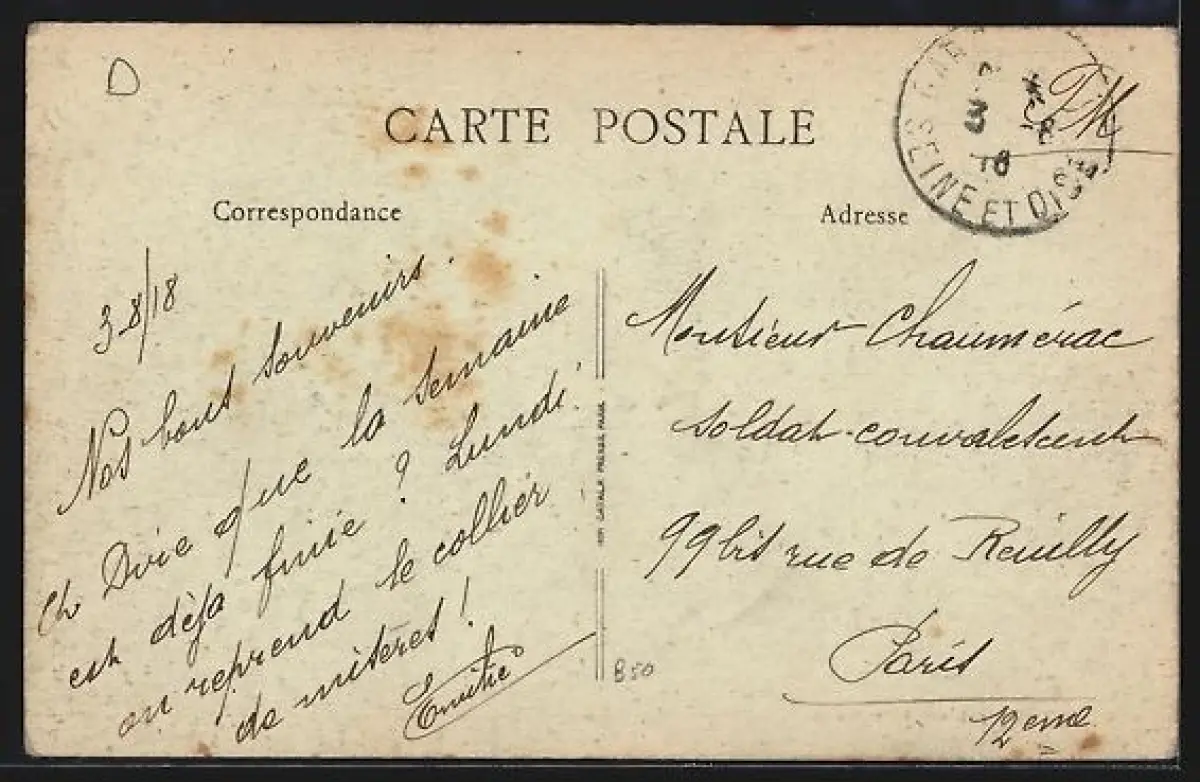 CARTE POSTALE
Correspondance
Adresse
SEINE ET OISE
3
8
18
FM
3-8/18
Nos bons souvenirs.
Et dire que la semaine
est déjà finie ? Lundi
on reprend le collier
de misères !
Monsieur Chaumérac
soldat convalescent
99 bis rue de Reuilly
Paris
12eme
B50